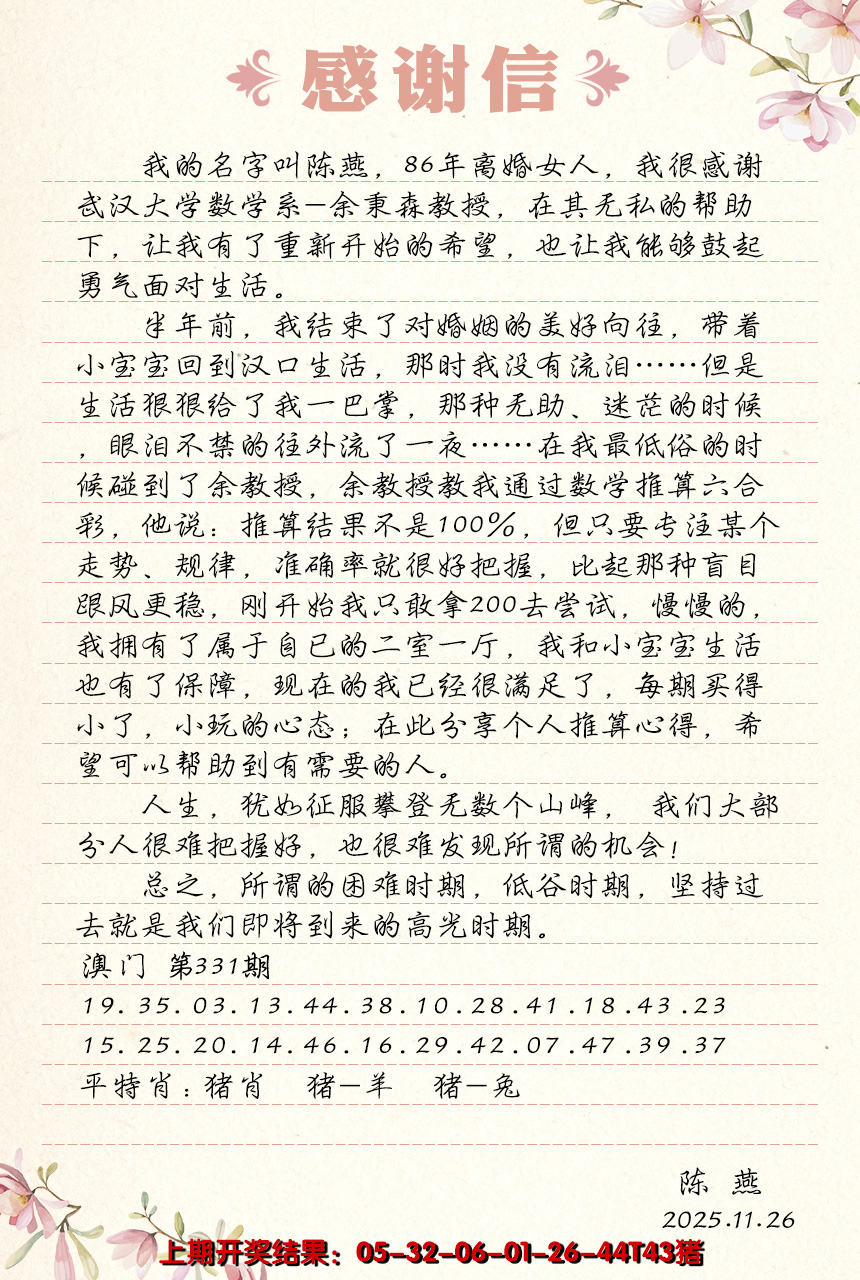 感谢信
我的名字叫陈燕，86年离婚女人，我很感谢
武汉大学数学系-余秉森教授，在其无私的帮助
下，让我有了重新开始的希望，也让我能够鼓起
勇气面对生活。
半年前，我结束了对婚姻的美好向往，带着
小宝宝回到汉口生活，那时我没有流泪……但是
生活狠狠给了我一巴掌，那种无助、迷茫的时候
，眼泪不禁的往外流了一夜……在我最低俗的时
候碰到了余教授，余教授教我通过数学推算六合
彩，他说：推算结果不是100%，但只要专注某个
走势、规律，准确率就很好把握，比起那种盲目
跟风更稳，刚开始我只敢拿200去尝试，慢慢的，
我拥有了属于自已的二室一厅，我和小宝宝生活
也有了保障，现在的我已经很满足了，每期买得
小了，小玩的心态；在此分享个人推算心得，希
望可以帮助到有需要的人。
人生，犹如征服攀登无数个山峰， 我们大部
分人很难把握好，也很难发现所谓的机会！
总之，所谓的困难时期，低谷时期，坚持过
去就是我们即将到来的高光时期。
澳门 第331期
19.35.03.13.44.38.10.28.41.18.43.23
15.25.20.14.46.16.29.42.07.47.39.37
平特肖：猪肖 猪-羊 猪-兔
陈 燕
2025.11.26
上期开奖结果：05-32-06-01-26-44T43猪